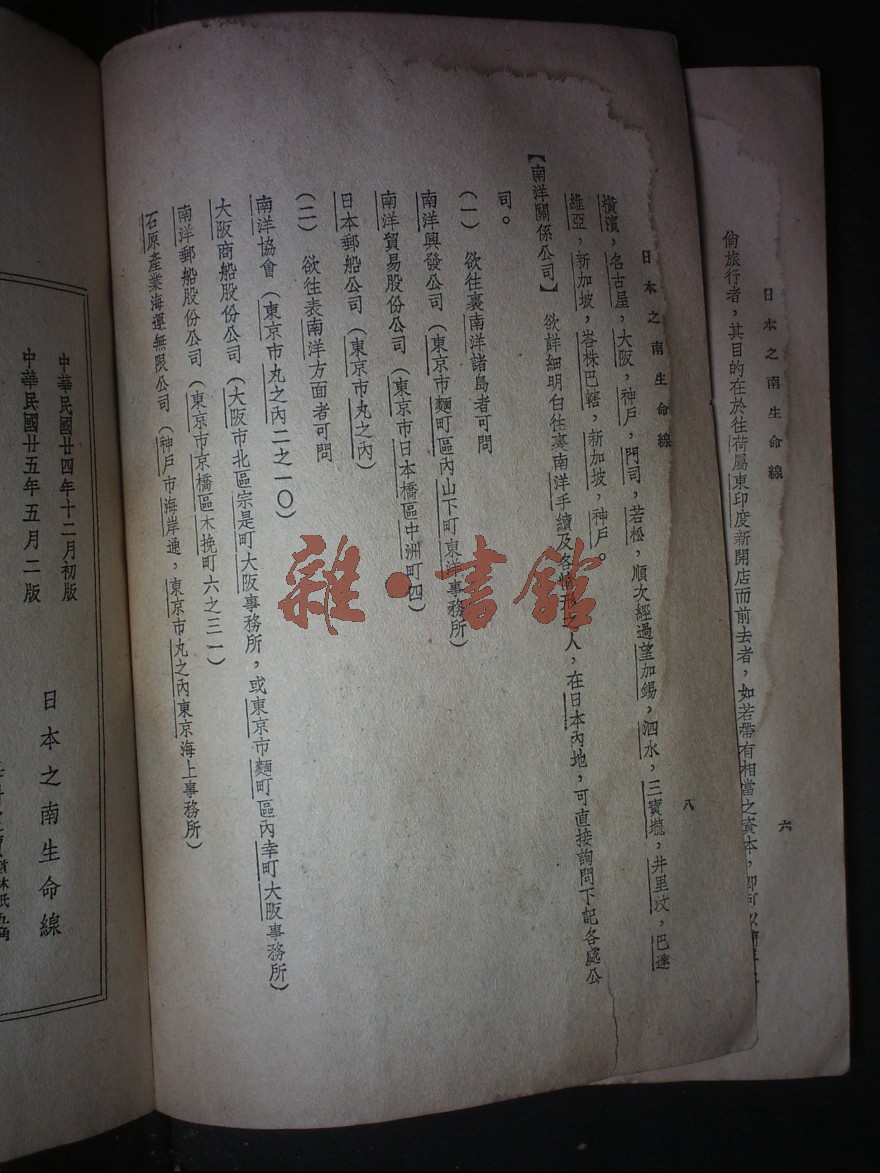 日本之南生命線
六
倘旅行者，其目的在於往荷屬東印度新開店而前去者，如若帶有相當之資本，卽可以
日本之南生命線
八
橫濱，名古屋，大阪，神戶，門司，若松，順次經過望加錫，泗水，三寶壠，井里汶，巴達
維亞，新加坡，峇株巴轄，新加坡，神戶。
【南洋關係公司】欲詳細明白往裏南洋手續及各情形之人，在日本內地，可直接詢問下記各處公
司。
（一）欲往裏南洋諸島者可問
南洋興發公司（東京市麵町區內山下町東洋事務所）
南洋貿易股份公司（東京市日本橋區中洲町四）
日本郵船公司（東京市丸之內）
（二）欲往表南洋方面者可問
南洋協會（東京市丸之內二之一〇）
大阪商船股份公司（大阪市北區宗是町大阪事務所，或東京市麵町區內幸町大阪事務所）
南洋郵船股份公司（東京市京橋區木挽町六之三一）
石原產業海運無限公司（神戶市海岸通，東京市丸之內東京海上事務所）
雜·書館
中華民國廿四年十二月初版
中華民國廿五年五月二版
日本之南生命線